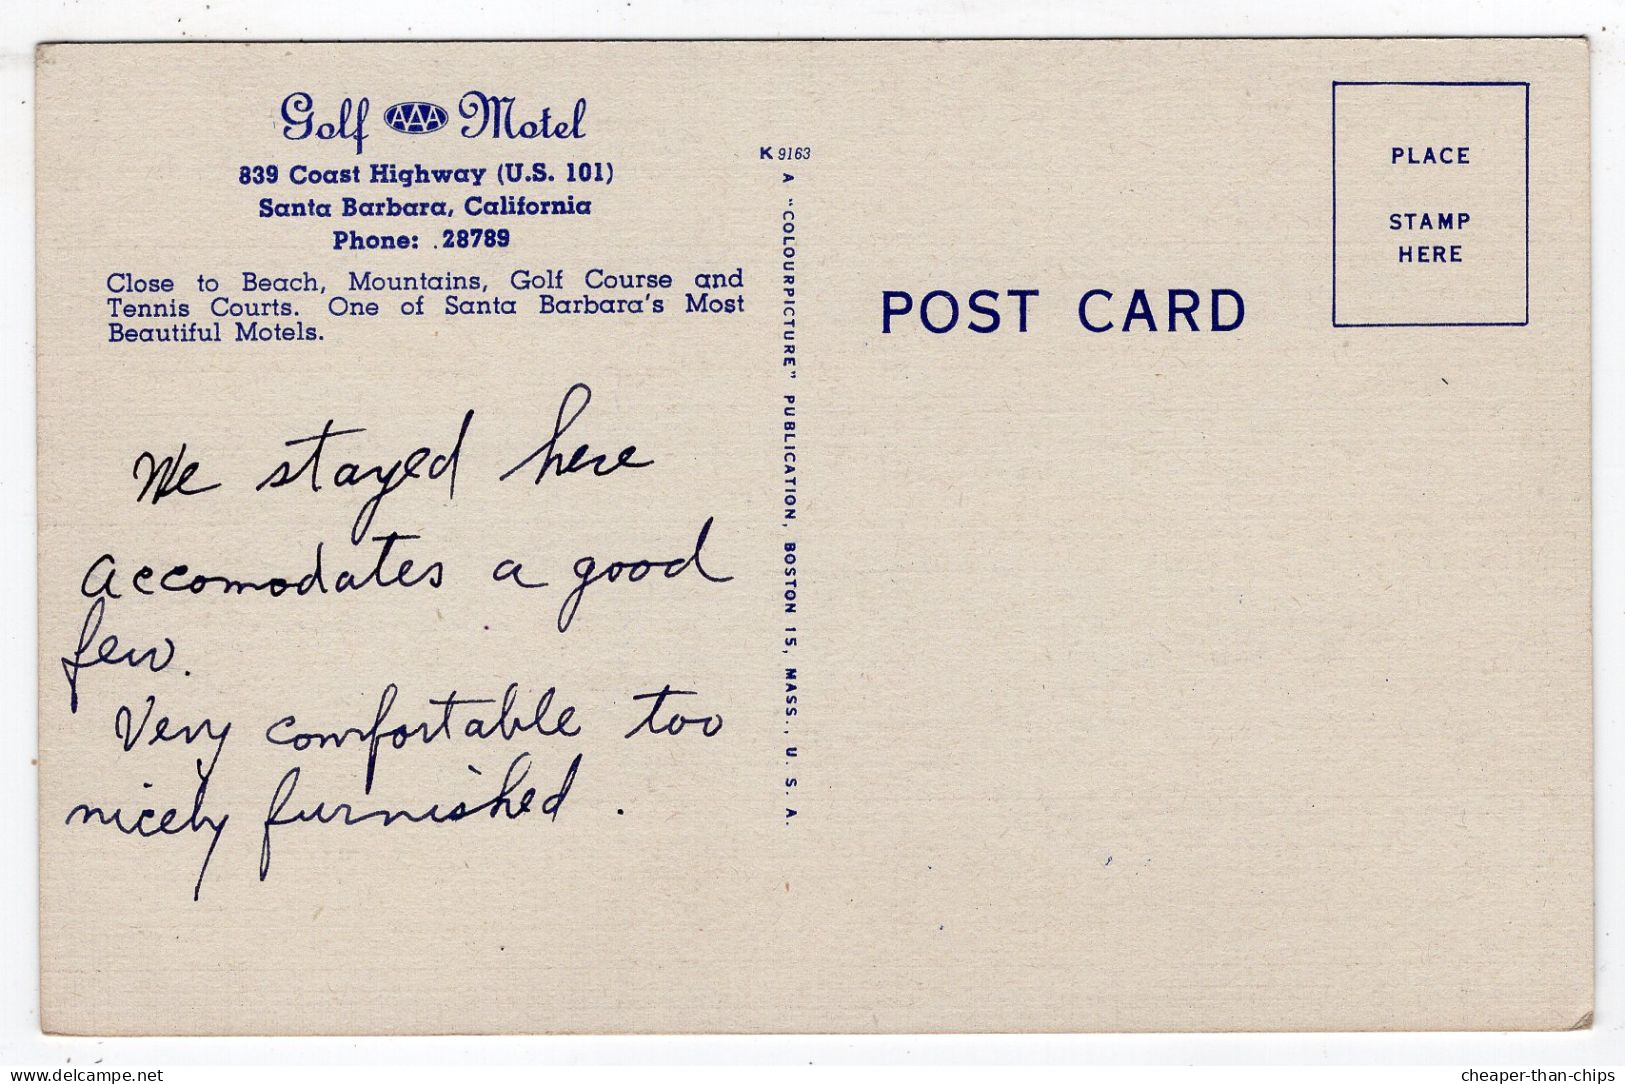 Golf AAA Motel
839 Coast Highway (U.S. 101)
Santa Barbara, California
Phone: .28789
Close to Beach, Mountains, Golf Course and
Tennis Courts. One of Santa Barbara's Most
Beautiful Motels.
We stayed here
accomodates a good
few.
Very comfortable too
nicely furnished.
K 9163
A "COLOURPICTURE" PUBLICATION, BOSTON 15, MASS., U. S. A.
POST CARD
PLACE
STAMP
HERE
www.delcampe.net
cheaper-than-chips